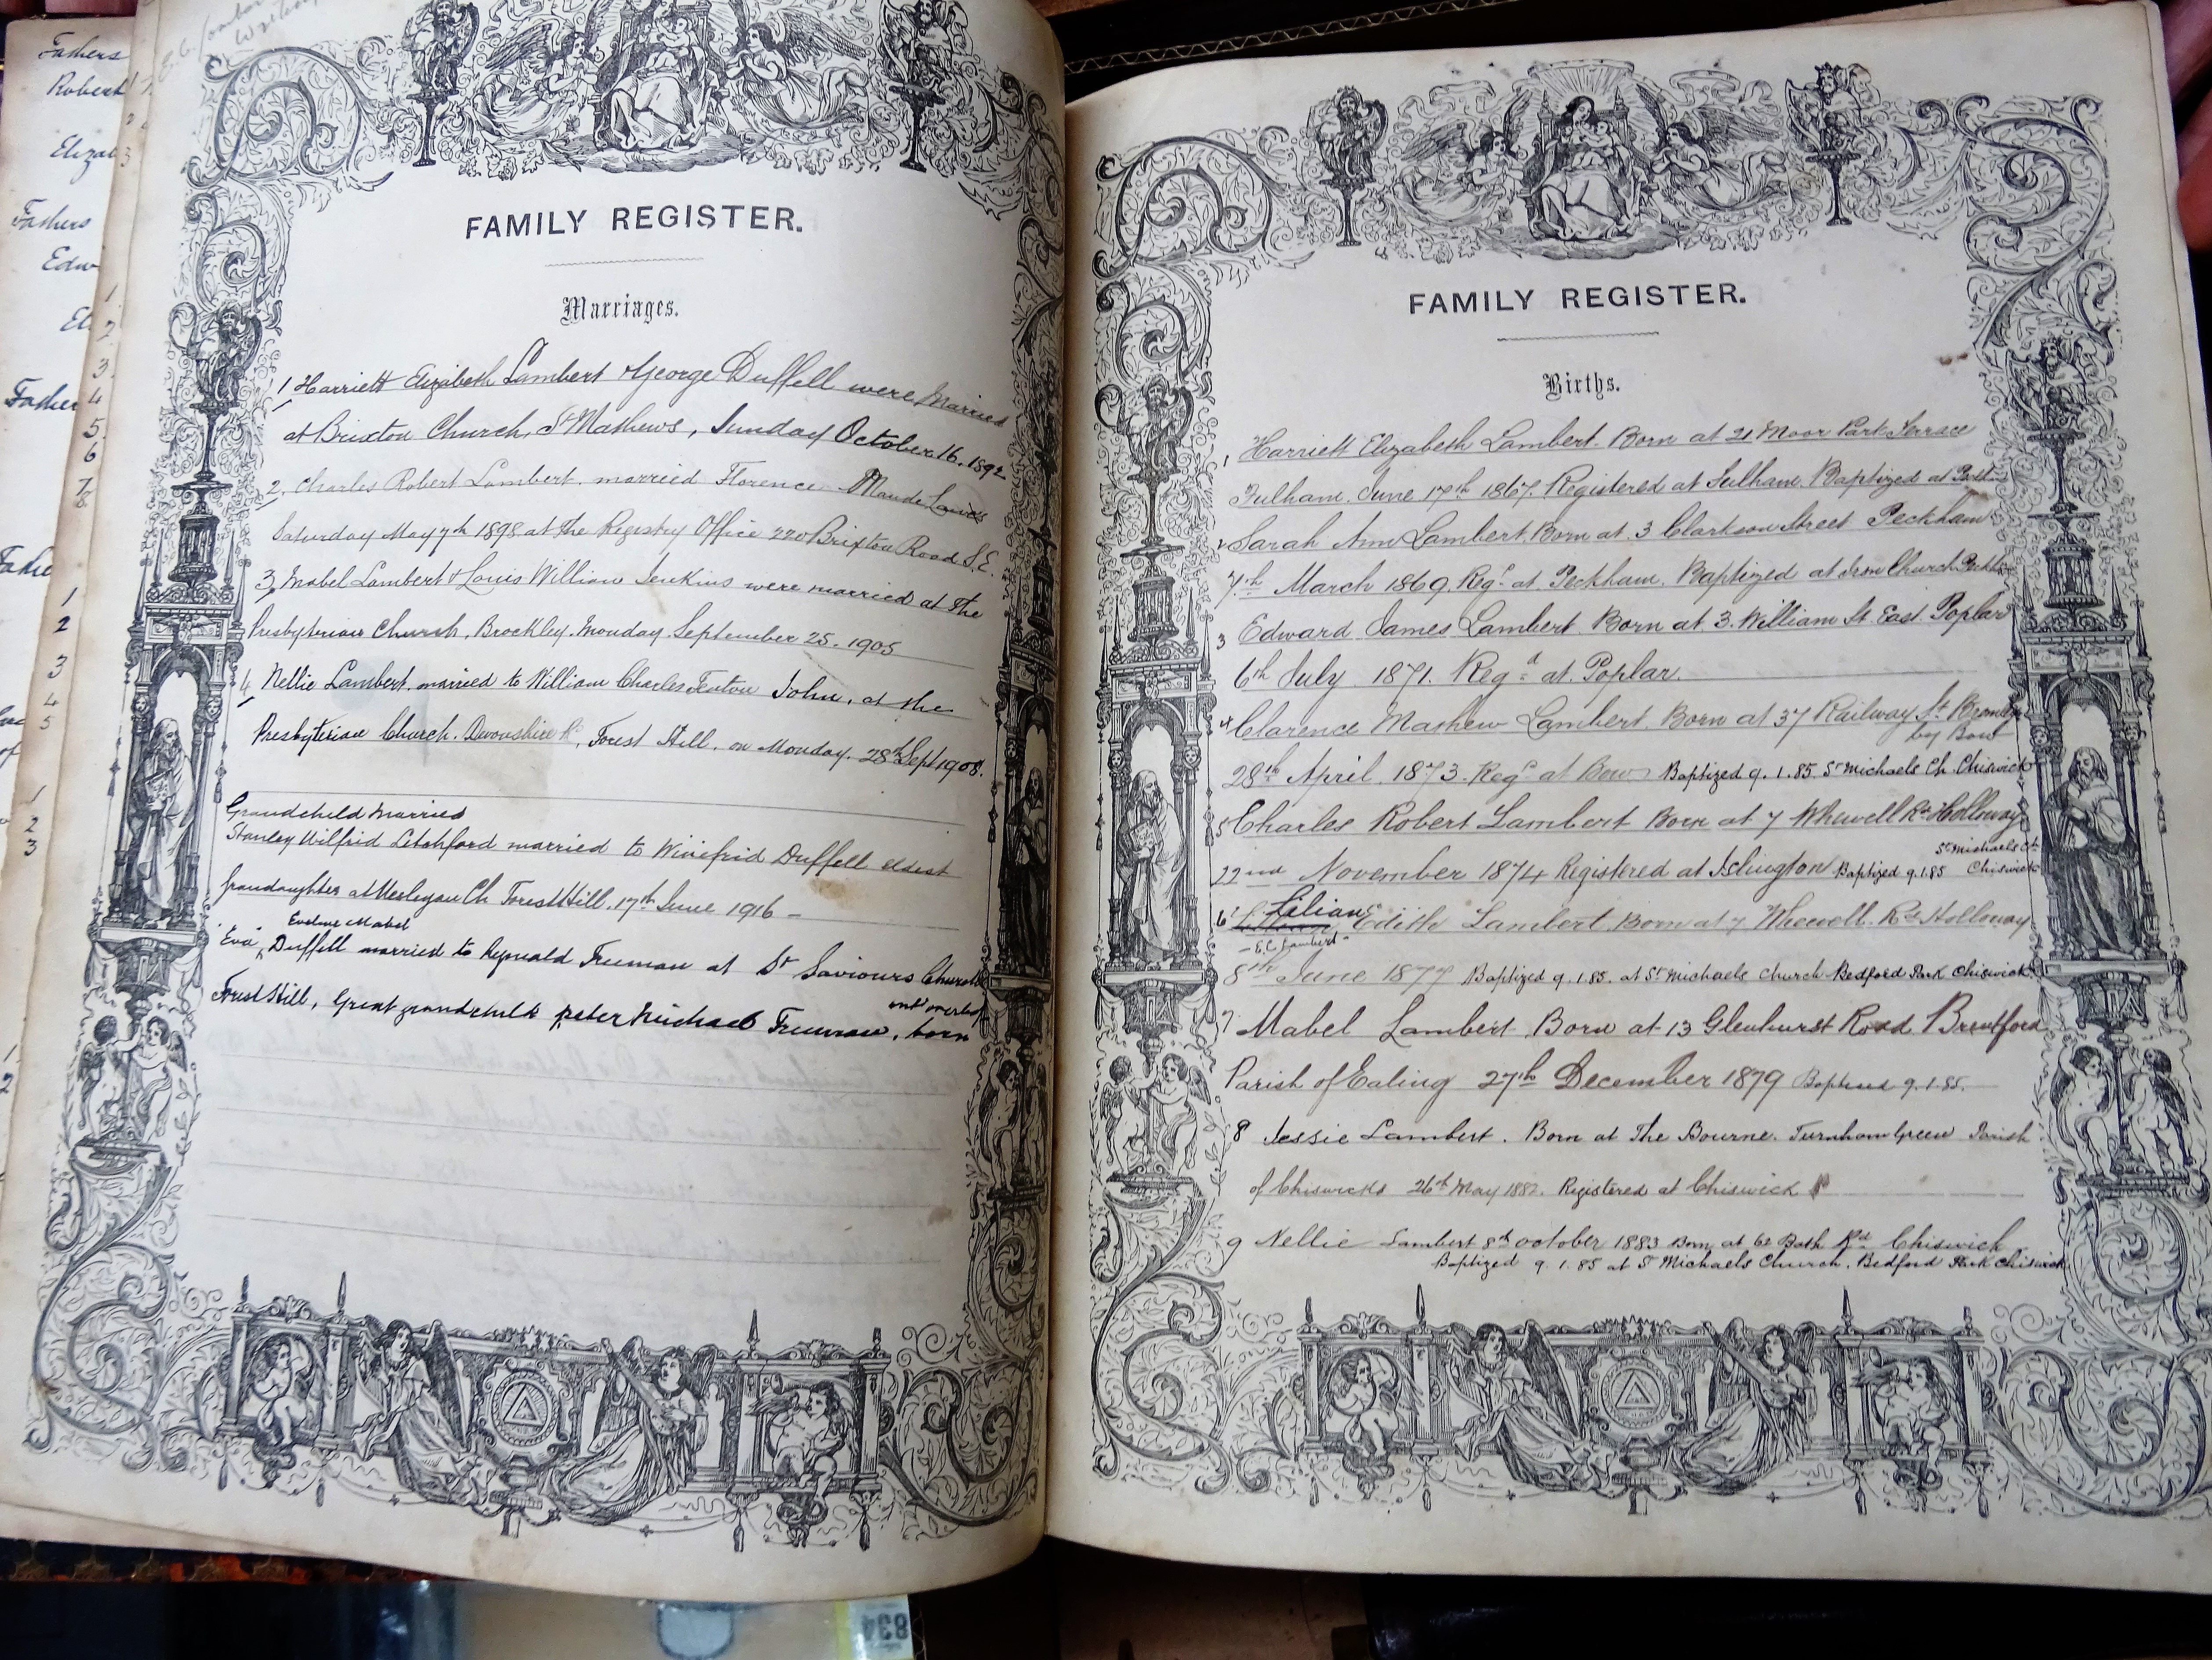 Fathers
Robert
Elizab
Fathers
Edw
El
Father
1
2
3
4
5
1
2
3
1
2
2
3
1
2
3
4
5
6
7
8
FAMILY REGISTER.
Marriages.
1 Harriett Elizabeth Lambert & George Duffell were Married
at Brixton Church, St Mathews, Sunday October 16. 1892
2. Charles Robert Lambert. married Florence Maude
Saturday May 7th 1898 at the Registry Office 220 Brixton Road S.E.
3, Mabel Lambert & Louis William Jenkins were married at the
Presbyterian Church, Brockley. Monday. September 25. 1905
4, Nellie Lambert. married to William Charles Fenton John, at the
Presbyterian Church. Devonshire Rd, Forest Hill. on Monday. 28th Sept 1908.
Grandchild Married
Stanley Wilfrid Letchford married to Winefrid Duffell eldest
grandaughter at Wesleyan Ch Forest Hill. 17th June 1916 -
Eveline Mabel
"Eva" Duffell married to Reynald Freeman at St Saviours Church
Forest Hill, Great grandchild peter Michael Freeman, born
FAMILY REGISTER.
Births.
1 Harriett Elizabeth Lambert. Born at 21 Moor Park Terrace
Fulham. June 17th 1867. Registered at Fulham. Baptized at
2 Sarah Ann Lambert. Born at 3 Clarkson Street Peckham
7th March 1869. Regd at Peckham. Baptized at Church
3 Edward James Lambert. Born at 3. William St. East. Poplar
6th July 1871. Regd at Poplar.
4 Clarence Mathew Lambert. Born at 37 Railway St Bromley
by Bow
28th April. 1873. Regd at Bow Baptized 9. 1. 85. St Michaels Ch. Chiswick
5 Charles Robert Lambert Born at 7 Whewell Rd Holloway
22nd November 1874 Registered at Islington Baptized 9.1.85 St Michaels Ch Chiswick
6 Lilian Edith Lambert. Born at 7 Whewell. Rd Holloway
- E.C. Lambert -
8th June 1877 Baptized 9. 1. 85. at St Michaels Church Bedford Park Chiswick
7 Mabel Lambert. Born at 13 Glenhurst Road Brentford
Parish of Ealing 27th December 1879 Baptized 9. 1. 85.
8 Jessie Lambert. Born at The Bourne. Turnham Green Parish
of Chiswick 26th May 1882. Registered at Chiswick
9 Nellie Lambert 8th october 1883 Born at 62 Bath Rd Chiswick
Baptized 9. 1. 85 at St Michaels Church. Bedford Park Chiswick
834